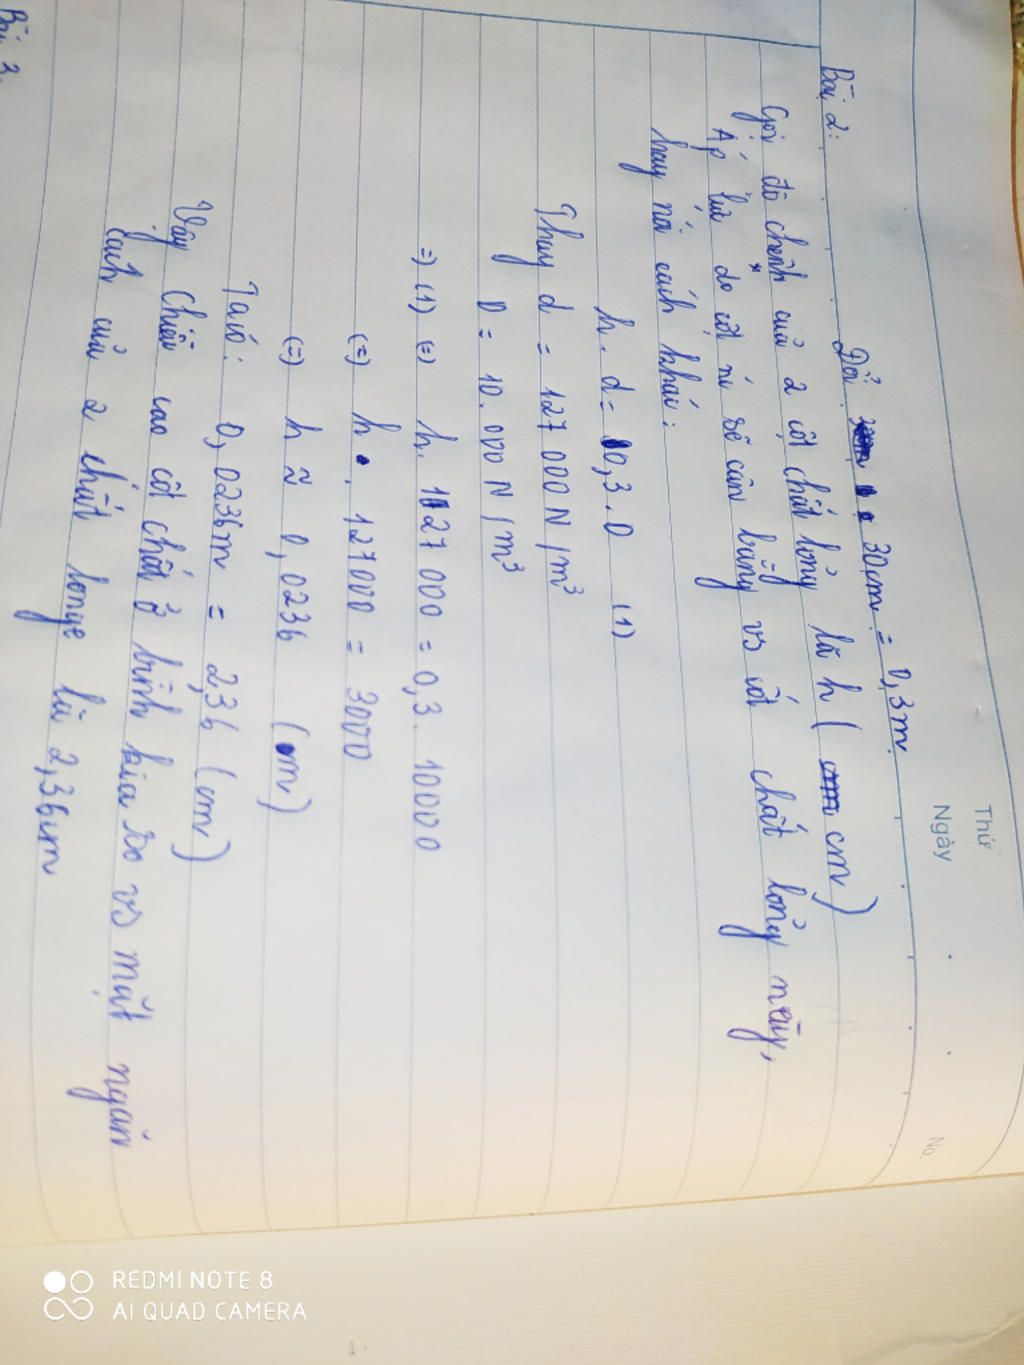 Thứ
Ngày
No.
Bài 2:
Đổi 30cm = 0,3m
Gọi độ chênh của 2 cột chất lỏng là h (cm)
Áp lực do cột nc sẽ cân bằng vs cột chất lỏng này,
hay nói cách khác:
h.d = 0,3.D (1)
Thay d = 127 000 N/m³
D = 10.000 N/m³
=> (1) (=) h. 127 000 = 0,3. 10000
(=) h . 127000 = 3000
(=) h ≈ 0,0236 (m)
Ta có: 0,0236m = 2,36 (cm)
Vậy chiều cao cột chất ở bình kia so vs mặt ngăn
cách của 2 chất lỏng là 2,36cm
Bài 3.
REDMI NOTE 8
AI QUAD CAMERA